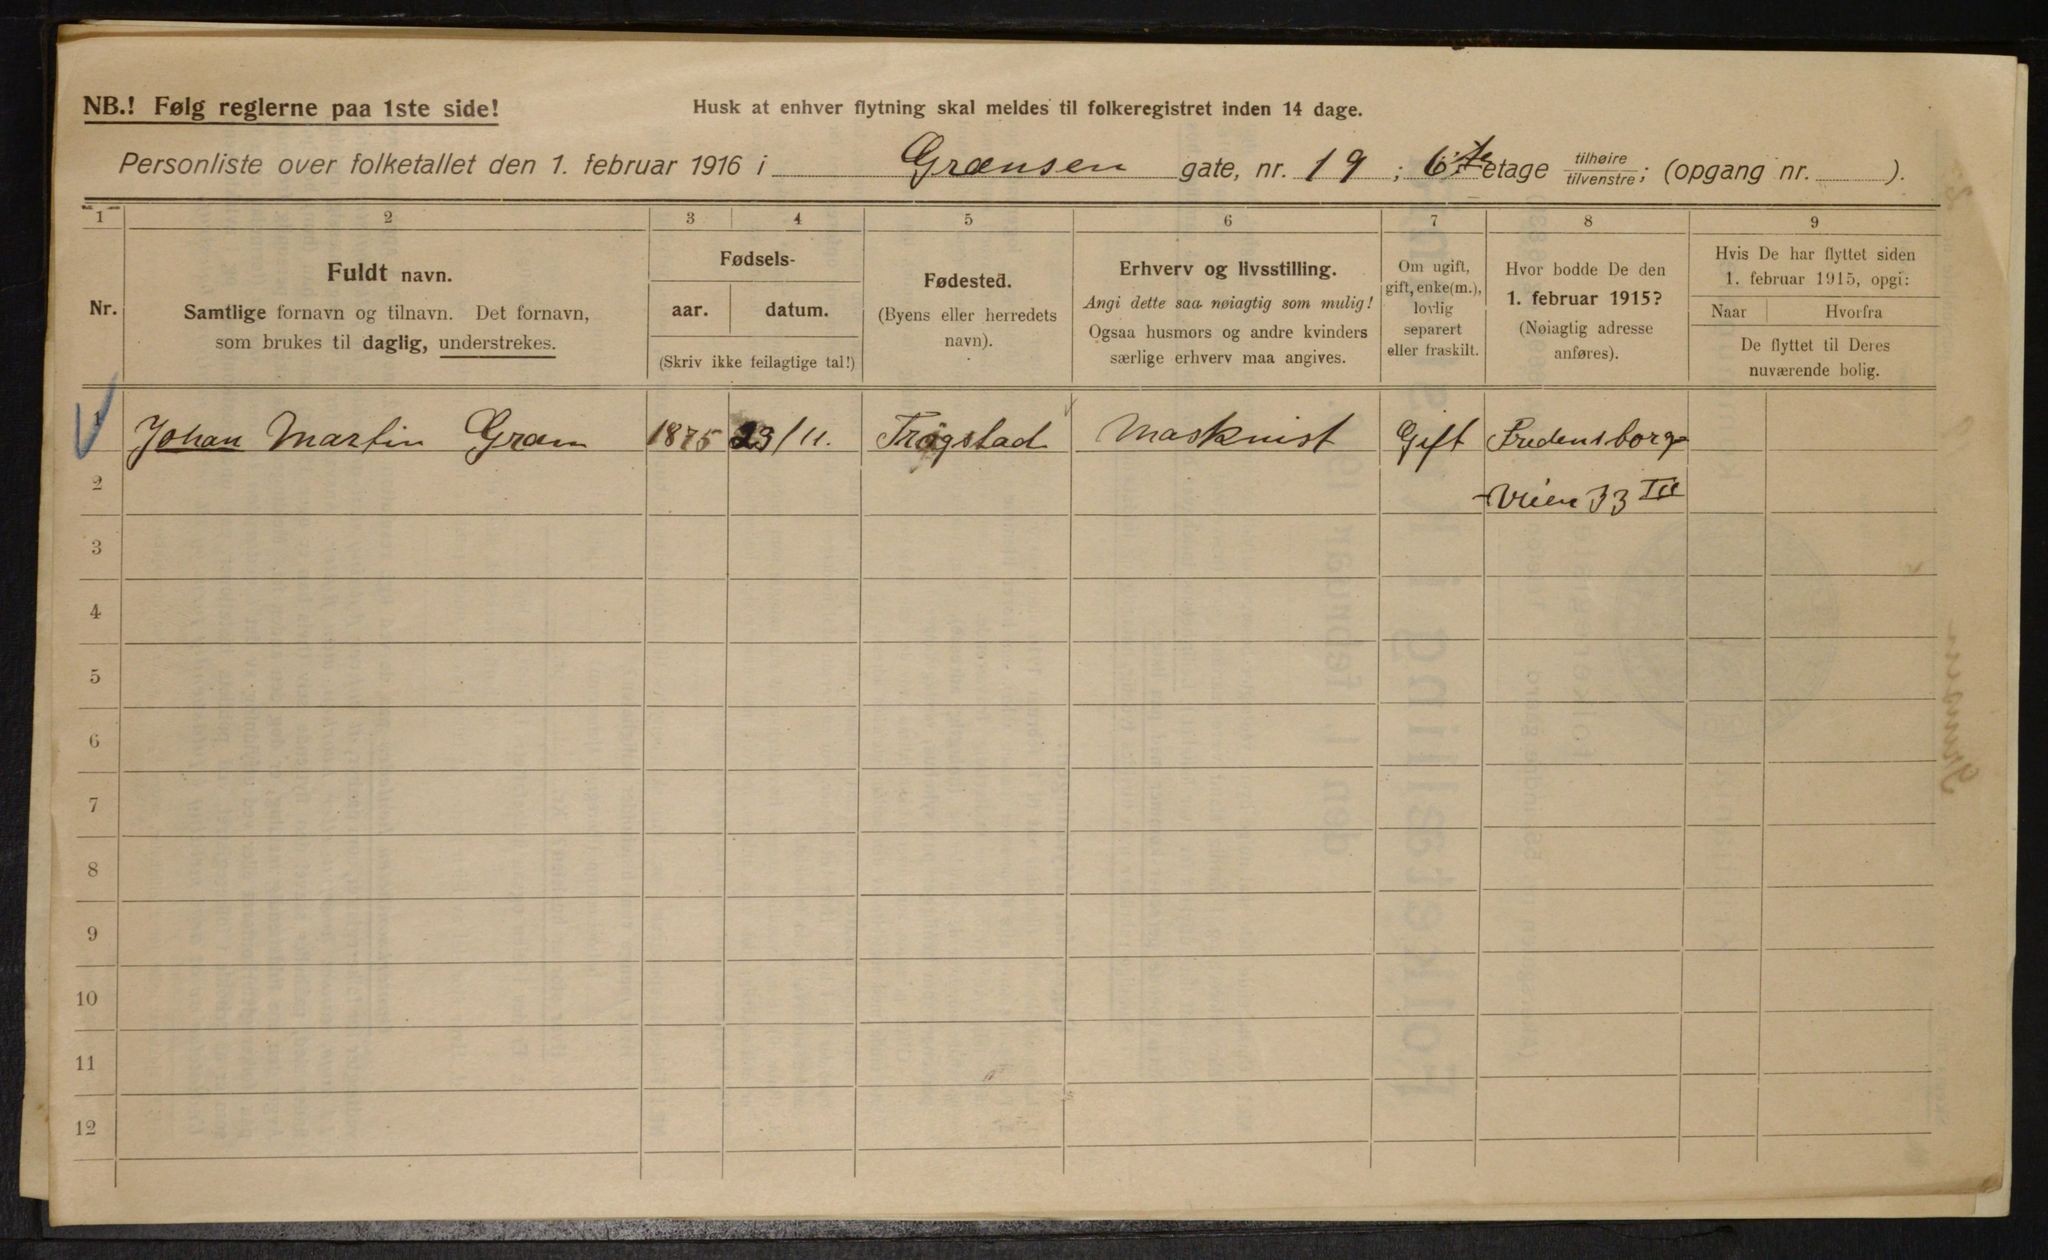 NB.! Følg reglerne paa 1ste side!
Husk at enhver flytning skal meldes til folkeregistret inden 14 dage.
Personliste over folketallet den 1. februar 1916 i Grænsen gate, nr. 19 ; 6te etage tilhøire/tilvenstre; (opgang nr. ).
1 2 3 4 5 6 7 8 9
Nr.
Fuldt navn.
Samtlige fornavn og tilnavn. Det fornavn,
som brukes til daglig, understrekes.
Fødsels-
aar. datum.
(Skriv ikke feilagtige tal!)
Fødested.
(Byens eller herredets
navn).
Erhverv og livsstilling.
Angi dette saa nøiagtig som mulig!
Ogsaa husmors og andre kvinders
særlige erhverv maa angives.
Om ugift,
gift, enke(m.),
lovlig
separert
eller fraskilt.
Hvor bodde De den
1. februar 1915?
(Nøiagtig adresse
anføres).
Hvis De har flyttet siden
1. februar 1915, opgi:
Naar Hvorfra
De flyttet til Deres
nuværende bolig.
1 Johan Martin Gram 1875 23/11. Trøgstad Maskinist Gift Fredensborg-
2 -veien 33 III
3
4
5
6
7
8
9
10
11
12